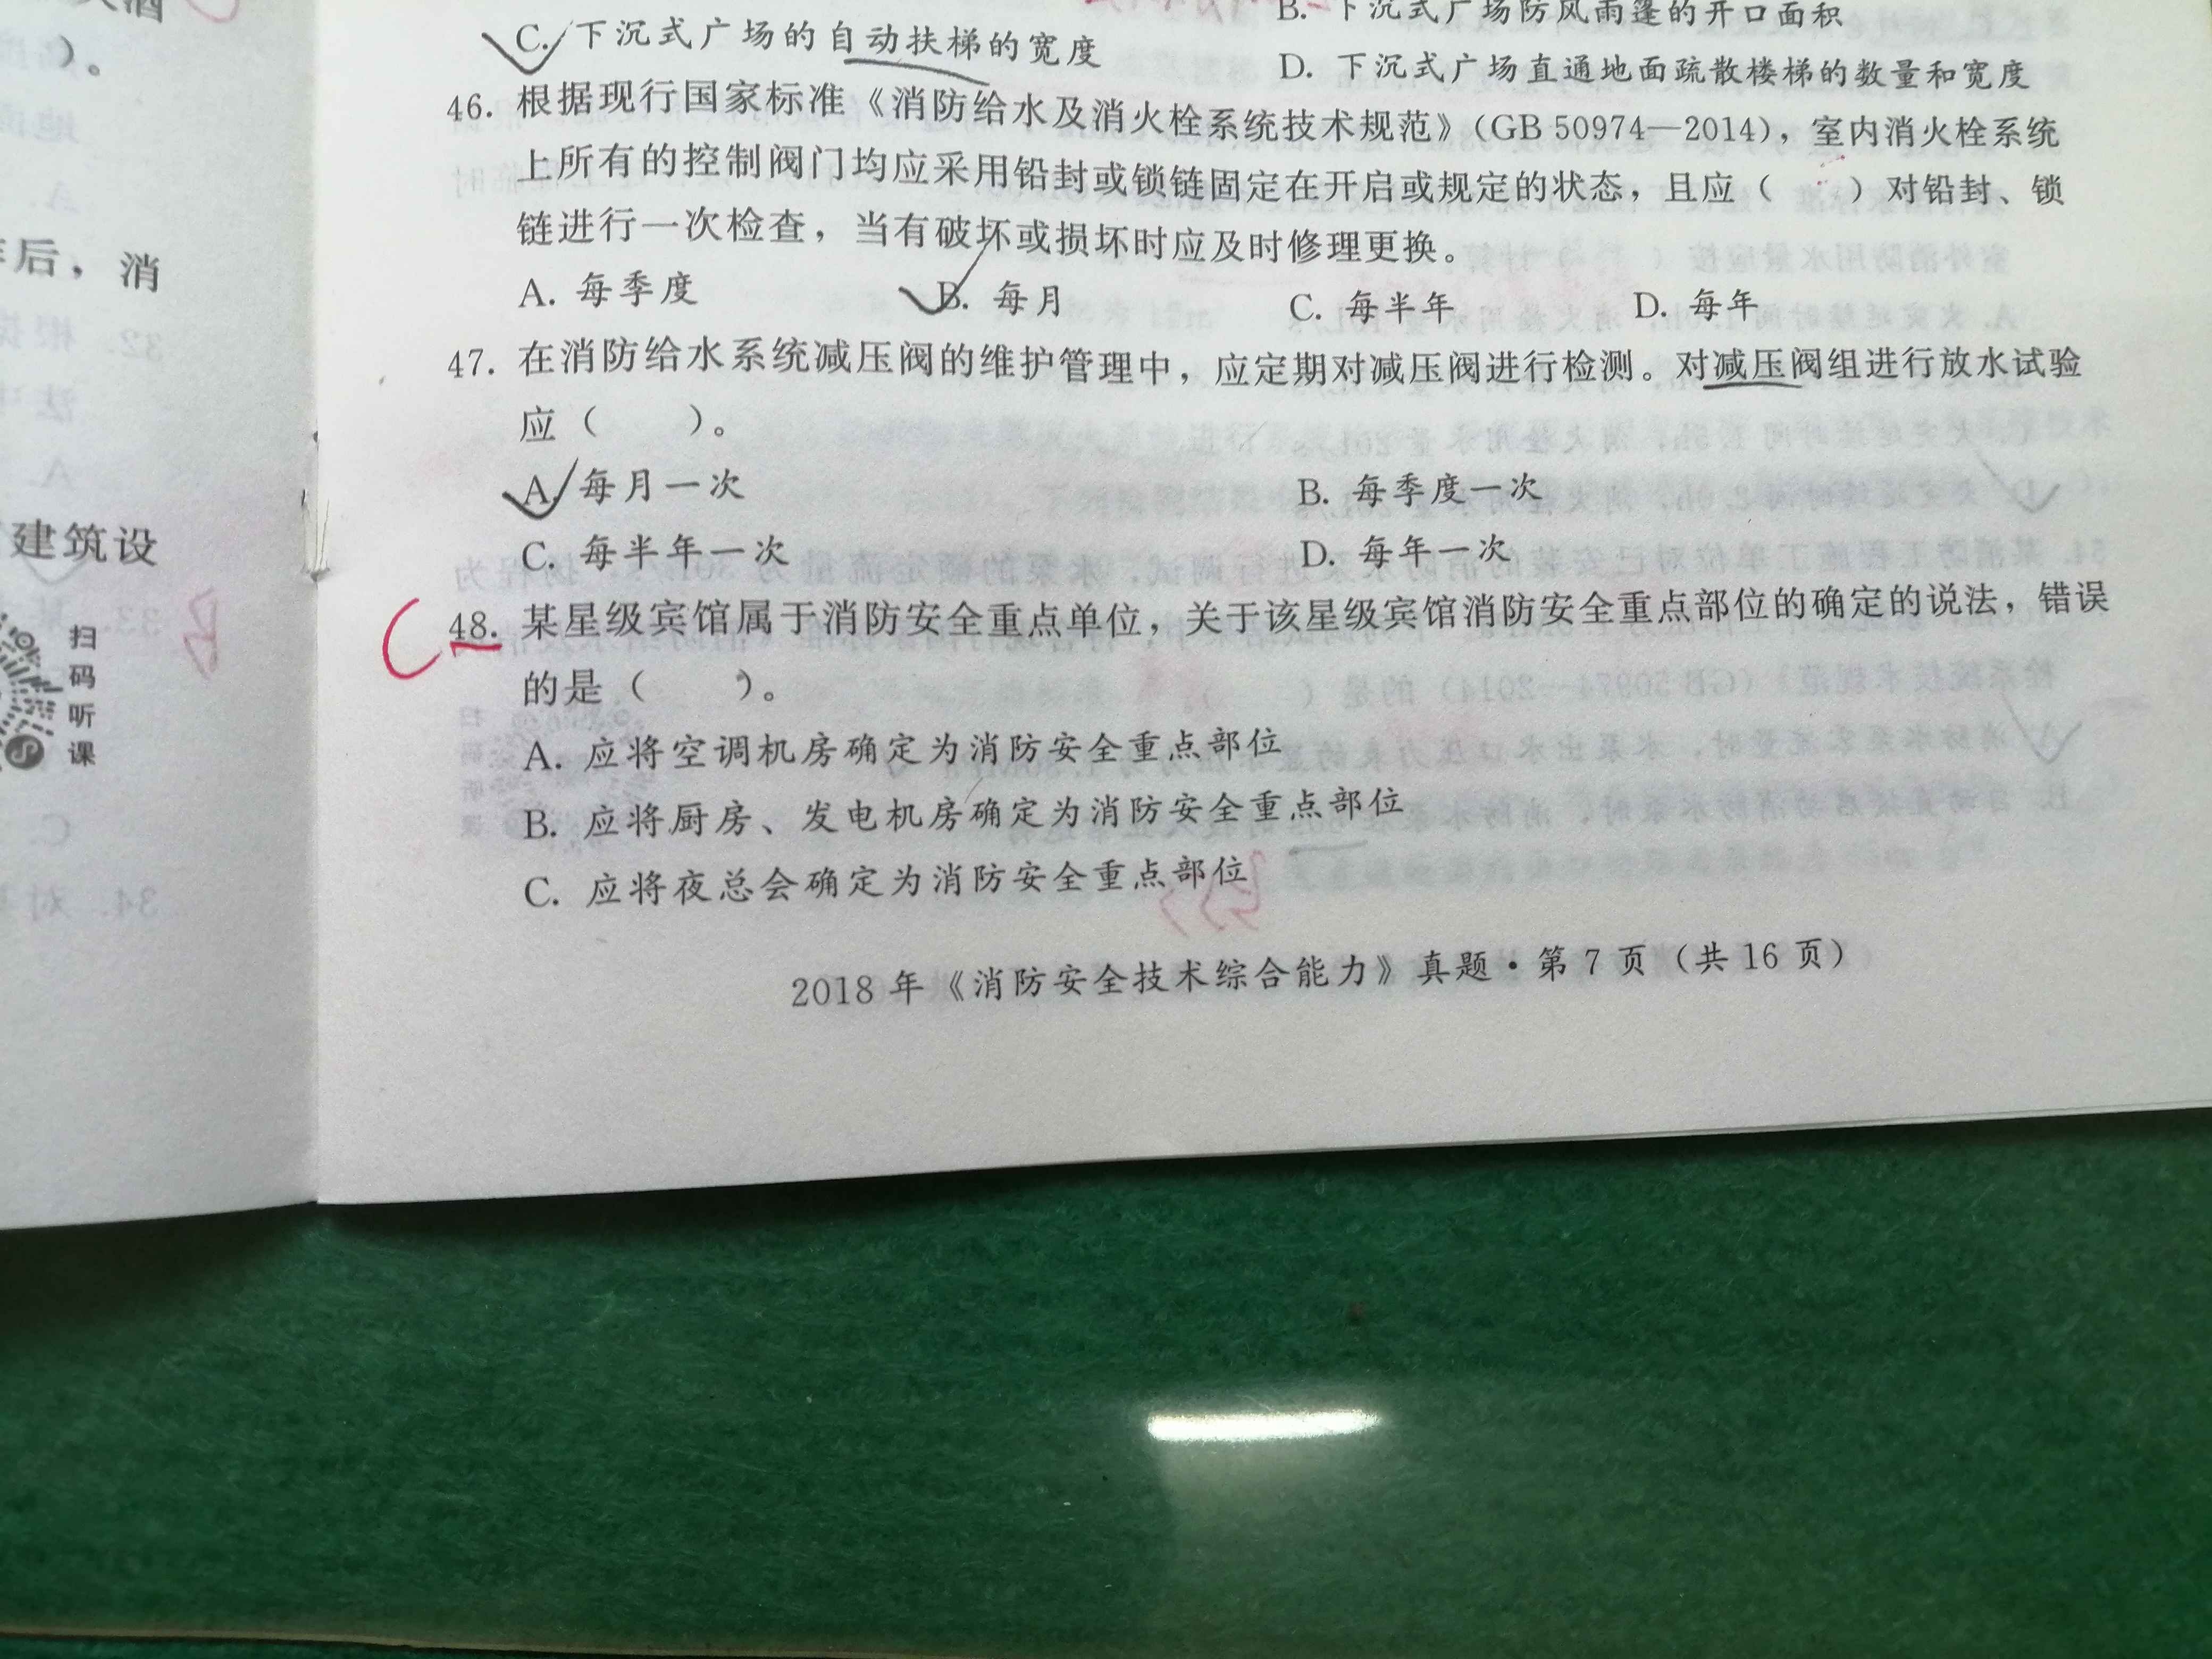 )。
后，消
建筑设
扫
码
听
课
B. 下沉式广场防风雨篷的开口面积
C. 下沉式广场的自动扶梯的宽度
D. 下沉式广场直通地面疏散楼梯的数量和宽度
46. 根据现行国家标准《消防给水及消火栓系统技术规范》(GB 50974—2014)，室内消火栓系统
上所有的控制阀门均应采用铅封或锁链固定在开启或规定的状态，且应（ ）对铅封、锁
链进行一次检查，当有破坏或损坏时应及时修理更换。
A. 每季度 B. 每月 C. 每半年 D. 每年
47. 在消防给水系统减压阀的维护管理中，应定期对减压阀进行检测。对减压阀组进行放水试验
应（ ）。
A. 每月一次 B. 每季度一次
C. 每半年一次 D. 每年一次
C 48. 某星级宾馆属于消防安全重点单位，关于该星级宾馆消防安全重点部位的确定的说法，错误
的是（ ）。
A. 应将空调机房确定为消防安全重点部位
B. 应将厨房、发电机房确定为消防安全重点部位
C. 应将夜总会确定为消防安全重点部位
2018 年《消防安全技术综合能力》真题·第 7 页（共 16 页）